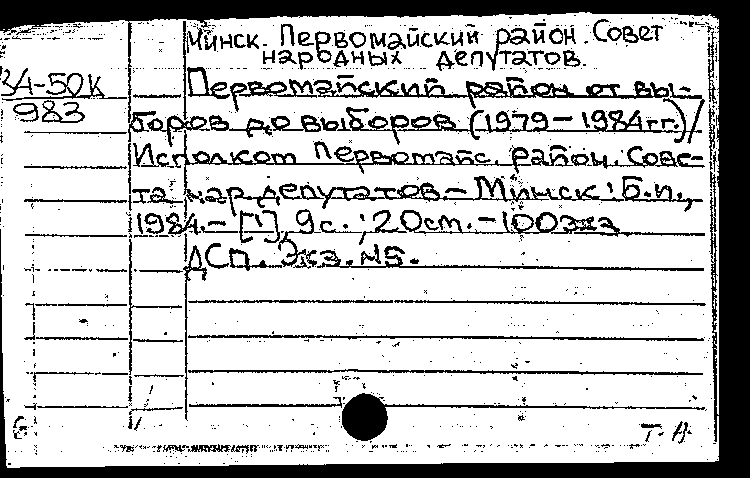 Минск. Первомайский район. Совет
народных депутатов.
3А-50К
983
Первомайский район от вы-
боров до выборов (1979-1984гг.)/
Исполком Первомайс. район. Сове-
та нар. депутатов.- Минск: Б.и.,
1984.- [1], 9с.; 20см.-100экз
ДСП. Экз. №5.
Т. А.